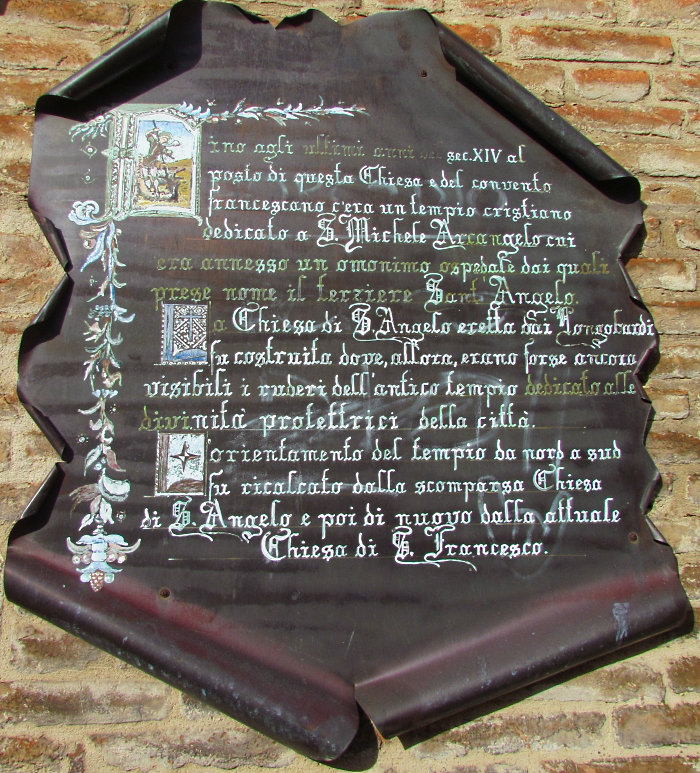 Fino agli ultimi anni del sec.XIV al
posto di questa Chiesa e del convento
francescano c'era un tempio cristiano
dedicato a S.Michele Arcangelo cui
era annesso un omonimo ospedale dai quali
prese nome il terziere Sant'Angelo.
La Chiesa di S.Angelo eretta dai Longobardi
fu costruita dove, allora, erano forse ancora
visibili i ruderi dell'antico tempio dedicato alle
divinità protettrici della città.
L'orientamento del tempio da nord a sud
fu ricalcato dalla scomparsa Chiesa
di S.Angelo e poi di nuovo dalla attuale
Chiesa di S. Francesco.